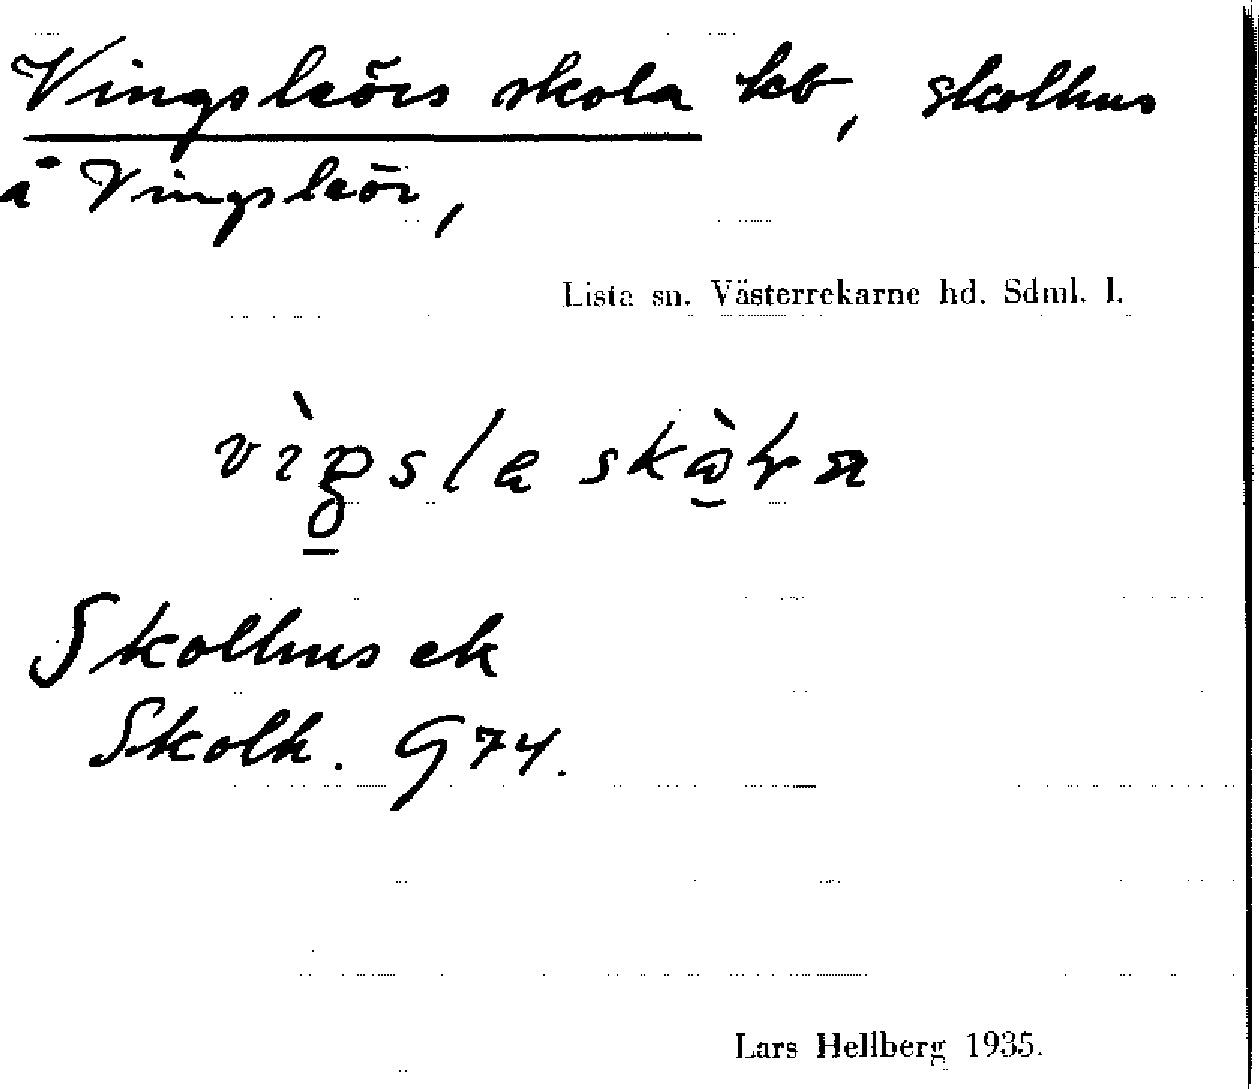 Vingsleörs skola kb, skolhus
å Vingsleör,
Lista sn. Västerrekarne hd. Sdml. l.
Skolhus ek
Skolh. G 74.
Lars Hellberg 1935.